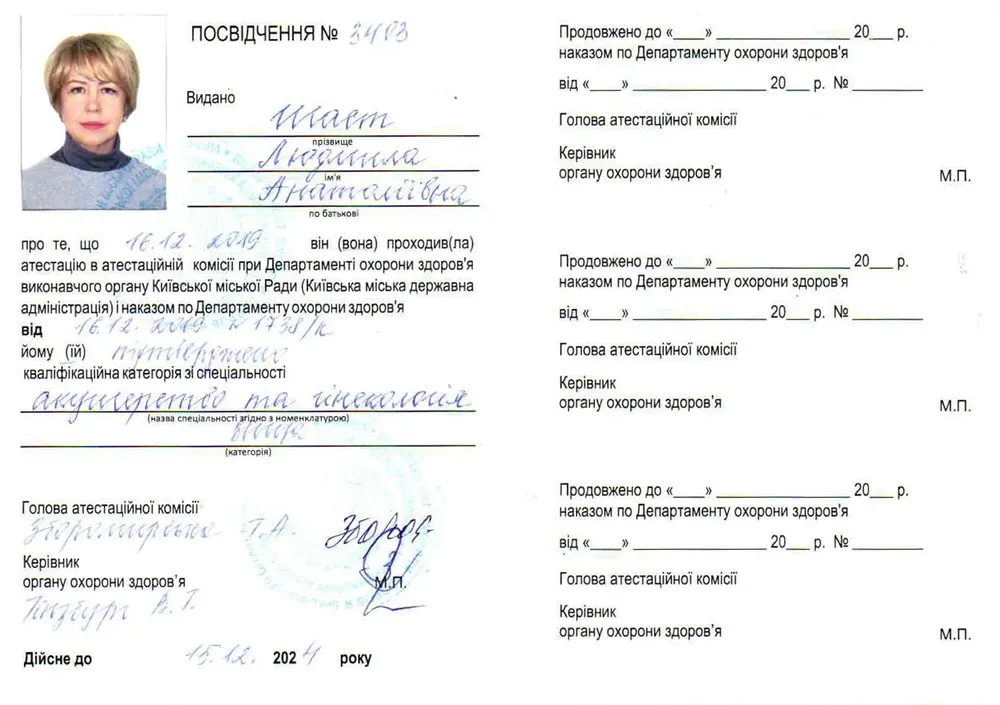 ПОСВІДЧЕННЯ № 3403
Видано
Шаст
прізвище
Людмила
ім'я
Анатоліївна
по батькові
про те, що 16.12. 2019 він (вона) проходив(ла)
атестацію в атестаційній комісії при Департаменті охорони здоров'я
виконавчого органу Київської міської Ради (Київська міська державна
адміністрація) і наказом по Департаменту охорони здоров'я
від 16.12. 2019 № 1738/к
йому (їй) підтверджено
кваліфікаційна категорія зі спеціальності
акушерство та гінекологія
(назва спеціальності згідно з номенклатурою)
вища
(категорія)
Голова атестаційної комісії
Т.А.
Керівник
органу охорони здоров'я
М.П.
Гінзбург В.Г.
Дійсне до 15.12. 2024 року
Продовжено до «____» ________________ 20___ р.
наказом по Департаменту охорони здоров'я
від «____» ________________ 20___ р. № _________
Голова атестаційної комісії
Керівник
органу охорони здоров'я
М.П.
Продовжено до «____» ________________ 20___ р.
наказом по Департаменту охорони здоров'я
від «____» ________________ 20___ р. № _________
Голова атестаційної комісії
Керівник
органу охорони здоров'я
М.П.
Продовжено до «____» ________________ 20___ р.
наказом по Департаменту охорони здоров'я
від «____» ________________ 20___ р. № _________
Голова атестаційної комісії
Керівник
органу охорони здоров'я
М.П.